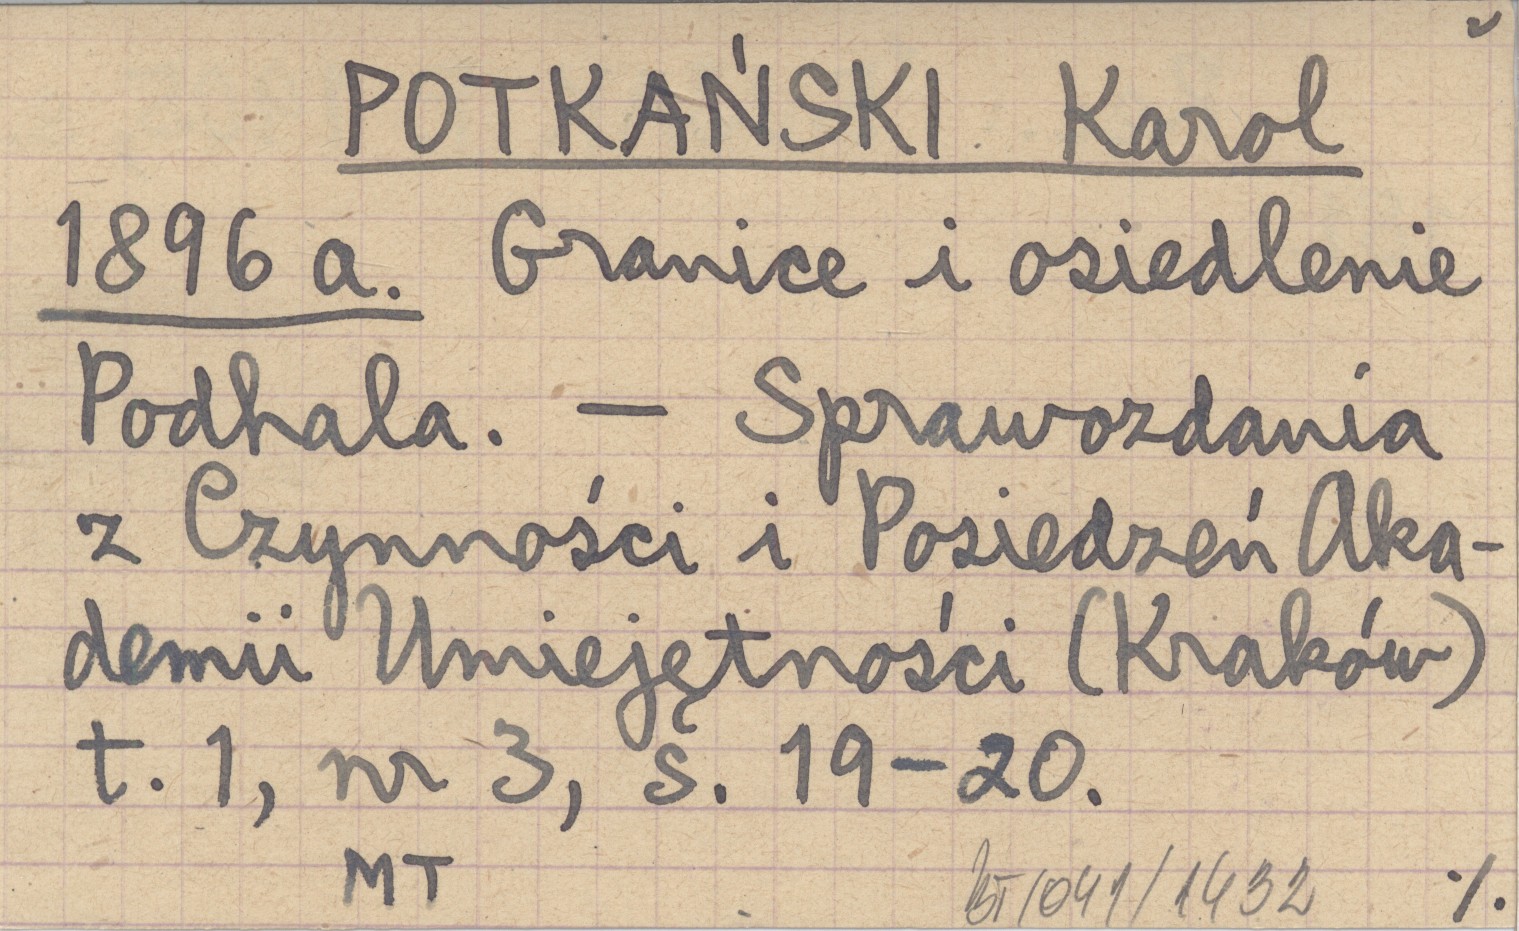 POTKAŃSKI Karol
1896 a. Granice i osiedlenie
Podhala. — Sprawozdania
z Czynności i Posiedzeń Aka-
demii Umiejętności (Kraków)
t. 1, nr 3, s. 19-20.
MT BT/041/1432 ./.